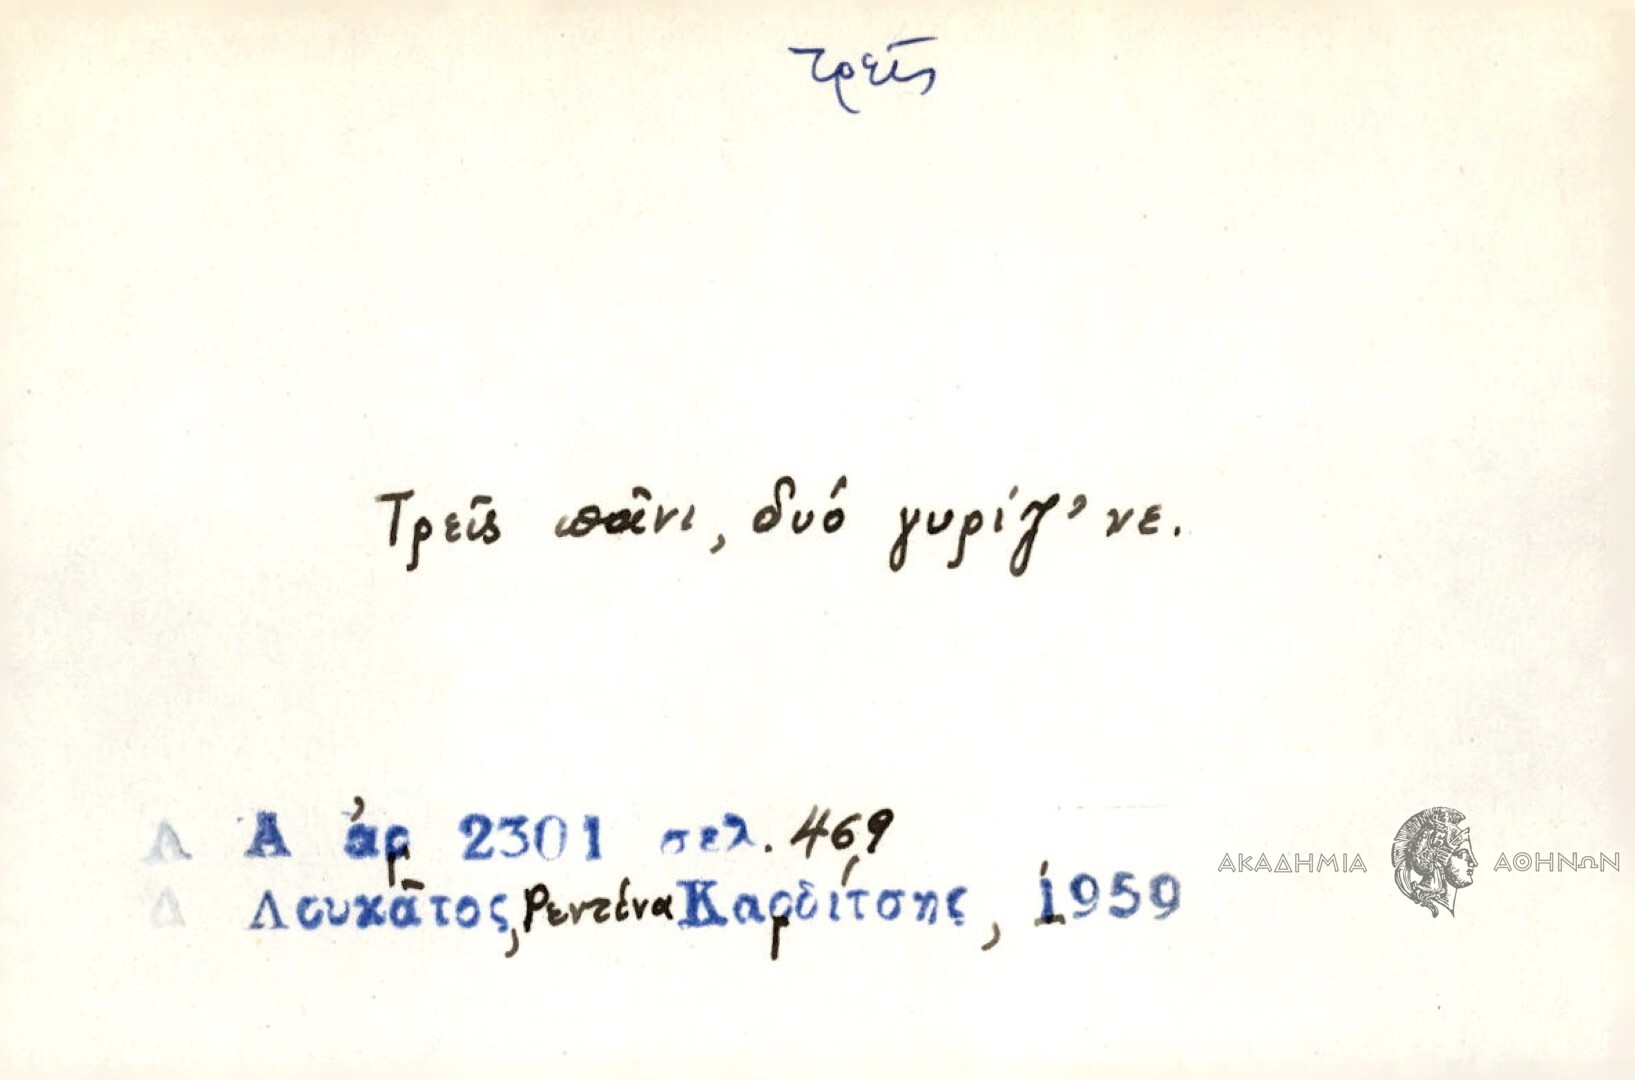 τρεῖς
Τρεῖς πᾶνι, δυό γυρίζ'νε.
Λ Α ἀρ 2301 σελ. 469
Δ Λουκᾶτος, Ρεντίνα Καρδίτσης, 1959
ΑΚΑΔΗΜΙΑ ΑΘΗΝΩΝ